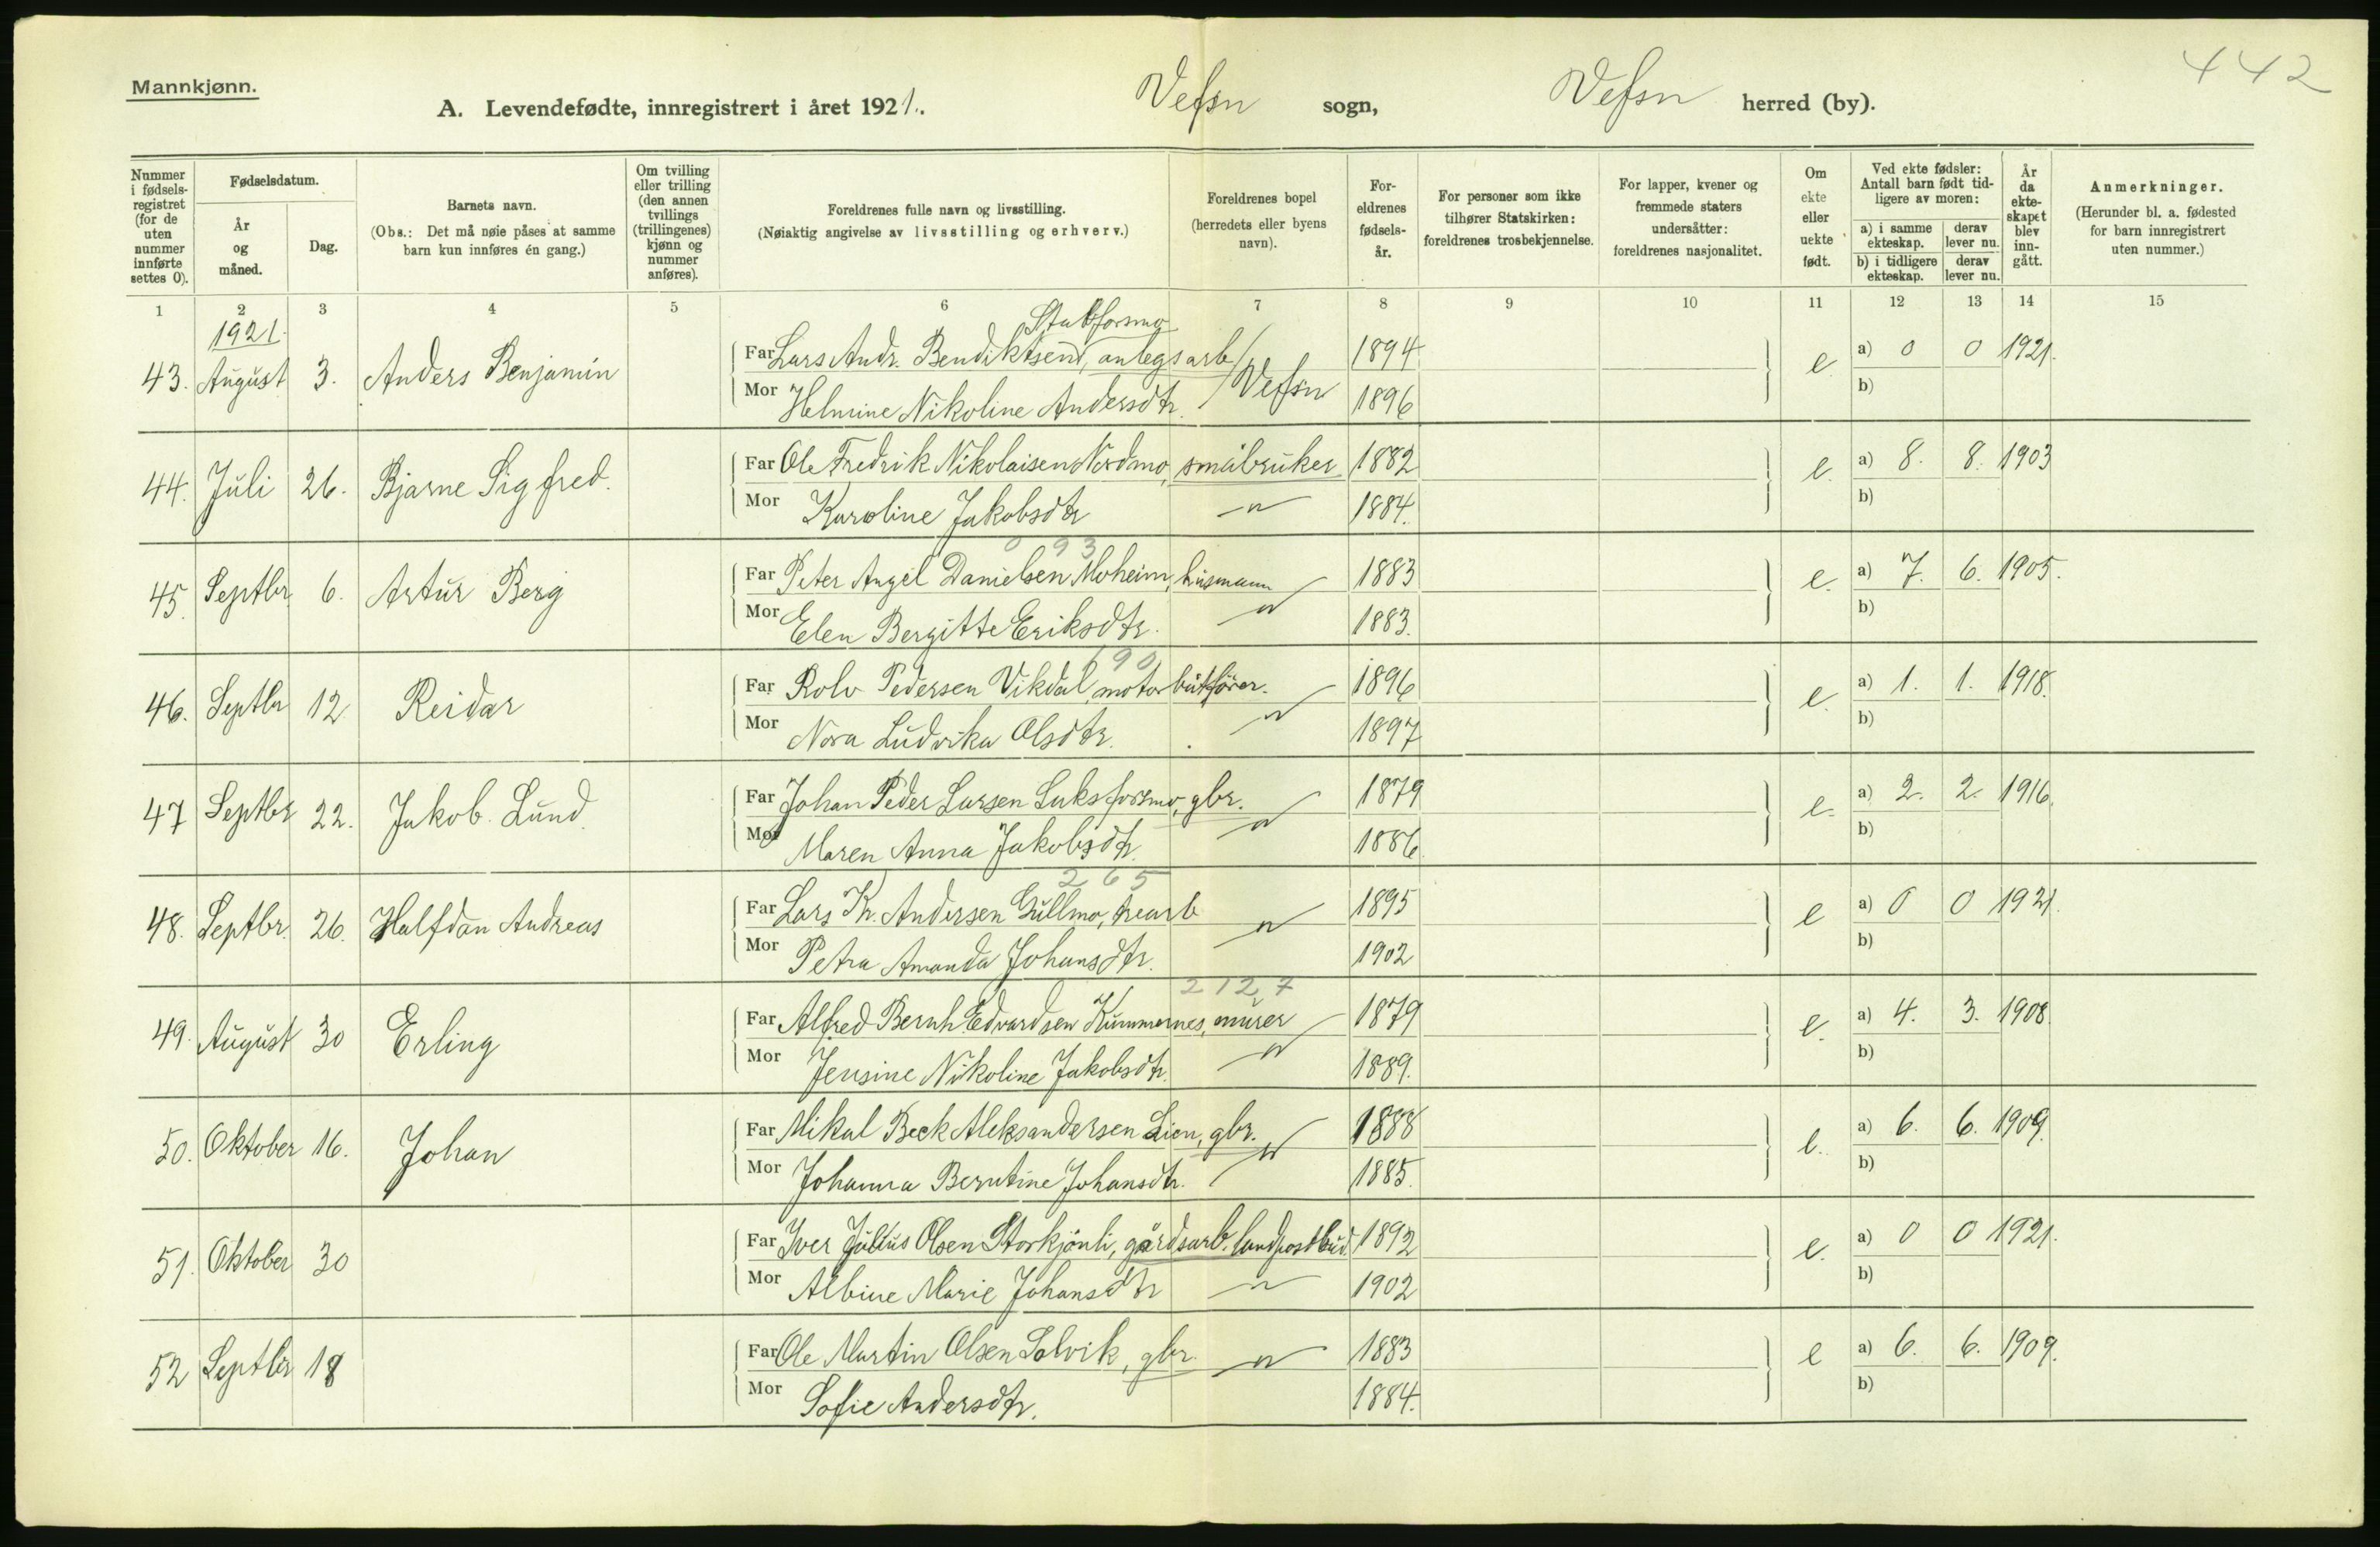 442
Mannkjønn.
A. Levendefødte, innregistrert i året 1921. Vefsn sogn, Vefsn herred (by).
Nummer i fødsels-registret (for de uten nummer innførte settes 0).
Fødselsdatum.
År og måned.
Dag.
Barnets navn.
(Obs.: Det må nøie påses at samme barn kun innføres én gang.)
Om tvilling eller trilling (den annen tvillings (trillingenes) kjønn og nummer anføres).
Foreldrenes fulle navn og livsstilling.
(Nøiaktig angivelse av livsstilling og erhverv.)
Foreldrenes bopel
(herredets eller byens navn).
For-eldrenes fødsels-år.
For personer som ikke tilhører Statskirken: foreldrenes trosbekjennelse.
For lapper, kvener og fremmede staters undersåtter: foreldrenes nasjonalitet.
Om ekte eller uekte født.
Ved ekte fødsler: Antall barn født tid-ligere av moren:
a) i samme ekteskap. derav lever nu.
b) i tidligere ekteskap. derav lever nu.
År da ekte-skapet blev inn-gått.
Anmerkninger.
(Herunder bl. a. fødested for barn innregistrert uten nummer.)
1 2 3 4 5 6 7 8 9 10 11 12 13 14 15
1921.
43. August 3. Anders Benjamin Far Lars Andr. Bendiktsen, anlegsarb. 1894 e a) 0 0 1921.
Mor Helmine Nikoline Andersdtr. Vefsn 1896 b)
44. Juli 26. Bjarne Sigfred. Far Ole Fredrik Nikolaisen Nordmo, småbruker 1882 e. a) 8. 8. 1903
Mor Karoline Jakobsdtr — " — 1884. b)
0 93
45. Septbr. 6. Artur Berg Far Peter Angel Danielsen Moheim, husmann 1883 e. a) 7. 6. 1905.
Mor Elen Bergitte Eriksdtr. — " — 1883. b)
190
46. Septbr 12 Reidar Far Rolv Pedersen Vikdal, motorbåtfører. 1896 e. a) 1. 1. 1918.
Mor Nora Ludvika Olsdtr. — " — 1897 b)
47 Septbr 22. Jakob Lund Far Johan Peder Larsen Luksforsmo, gbr. 1879 e. a) 2. 2. 1916.
Mor Maren Anna Jakobsdtr. — " — 1886 b)
265
48. Septbr. 26. Halfdan Andreas Far Lars Kr. Andersen Gullmo, trearb — " — 1895 e a) 0 0 1921.
Mor Petra Amanda Johansdtr. 1902 b)
212,7
49. August 30 Erling Far Alfred Bernh Edvardsen Kummernes, murer 1879 e. a) 4. 3. 1908
Mor Jensine Nikoline Jakobsdtr. — " — 1889. b)
50. Oktober 16. Johan Far Mikal Beck Aleksandersen Lien, gbr. — " — 1888 e. a) 6. 6. 1909.
Mor Johanna Berntine Johansdtr. 1885. b)
51. Oktober 30 Far Iver Julius Olsen Storkjønli, gårdsarb. landpostbud. 1892 e. a) 0 0 1921.
Mor Albine Marie Johansdtr — " — 1902 b)
52 Septbr 18 Far Ole Martin Olsen Solvik, gbr. — " — 1883 e a) 6. 6. 1909.
Mor Sofie Andersdtr. 1884. b)